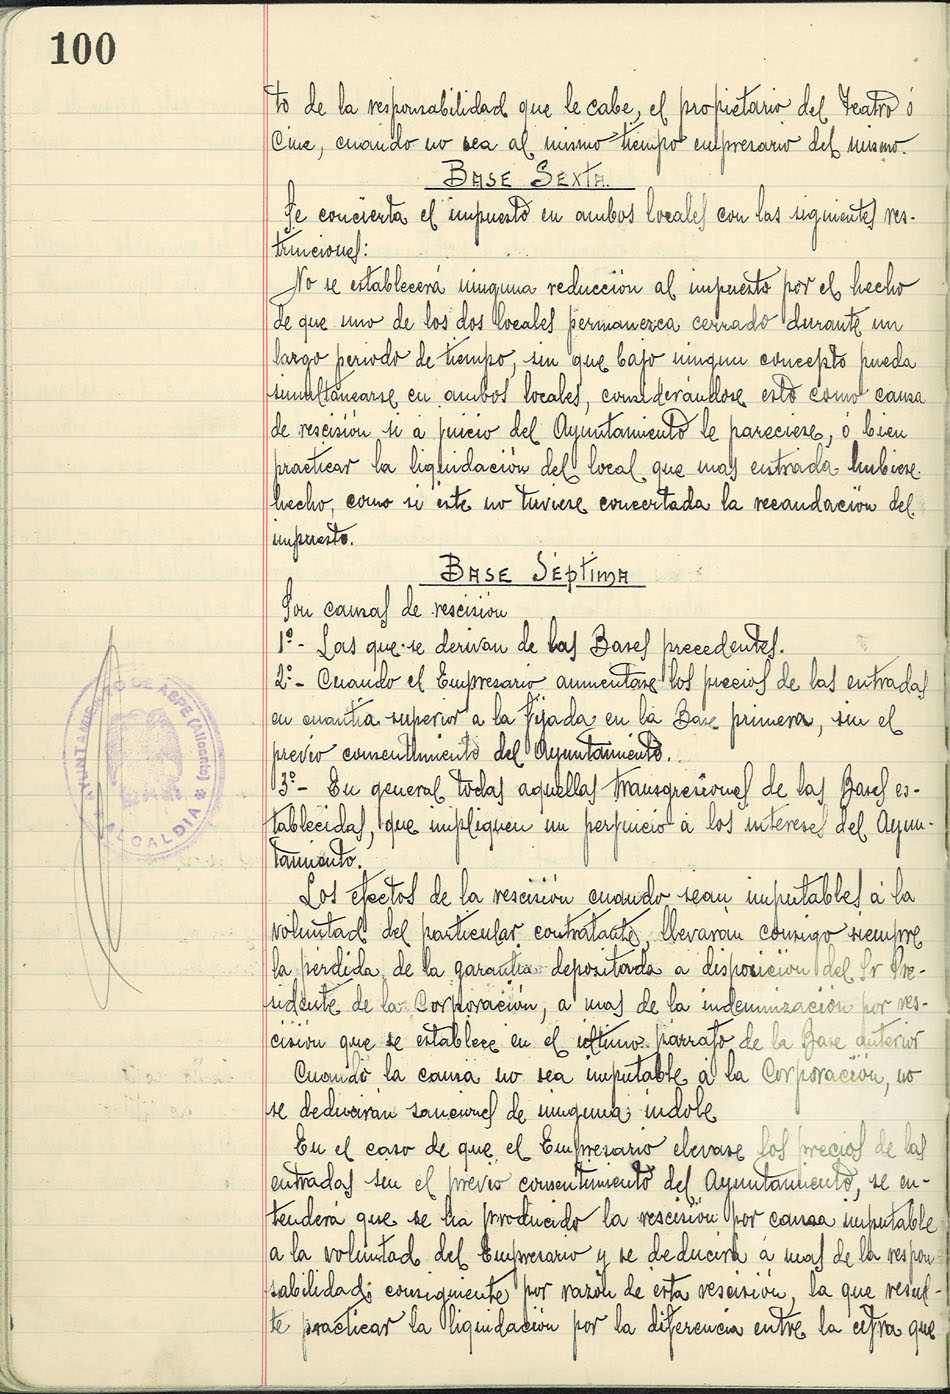 100
to de la responsabilidad que le cabe, el propietario del Teatro ó
Cine, cuando no sea al mismo tiempo empresario del mismo.
BASE SEXTA.
Se concierta el impuesto en ambos locales con las siguientes res-
tricciones:
No se establecerá ninguna reducción al impuesto por el hecho
de que uno de los dos locales permanezca cerrado durante un
largo periodo de tiempo, sin que bajo ningun concepto pueda
simultánearse en ambos locales, considerándose esto como causa
de rescisión si a juicio del Ayuntamiento le pareciese, ó bien
practicar la liquidación del local que mas entrada hubiese
hecho, como si éste no tuviese concertada la recaudación del
impuesto.
BASE SÉPTIMA
Son causas de rescisión
1º- Las que se derivan de las Bases precedentes.
2º- Cuando el Empresario aumentase los precios de las entradas
en cuantía superior a la fijada en la Base primera, sin el
previo consentimiento del Ayuntamiento.
3º- En general todas aquellas transgresiones de las Bases es-
tablecidas, que impliquen un perjuicio á los intereses del Ayun-
tamiento.
Los efectos de la rescisión cuando sean imputables á la
voluntad del particular contratante, llevarán consigo siempre
la pérdida de la garantia depositada a disposición del Sr Pre-
sidente de la Corporación, a mas de la indemnización por res-
cisión que se establece en el último parrafo de la Base anterior
Cuando la causa no sea imputable á la Corporación, no
se deducirán sanciones de ninguna índole
En el caso de que el Empresario elevase los precios de las
entradas sin el previo consentimiento del Ayuntamiento, se en-
tenderá que se ha producido la rescisión por causa imputable
a la voluntad del Empresario y se deducirá á mas de la respon
sabilidad consiguiente por razón de esta rescisión, la que resul-
te practicar la liquidación por la diferencia entre la cifra que
AYUNTAMIENTO DE ASPE (Alicante)
* ALCALDIA *